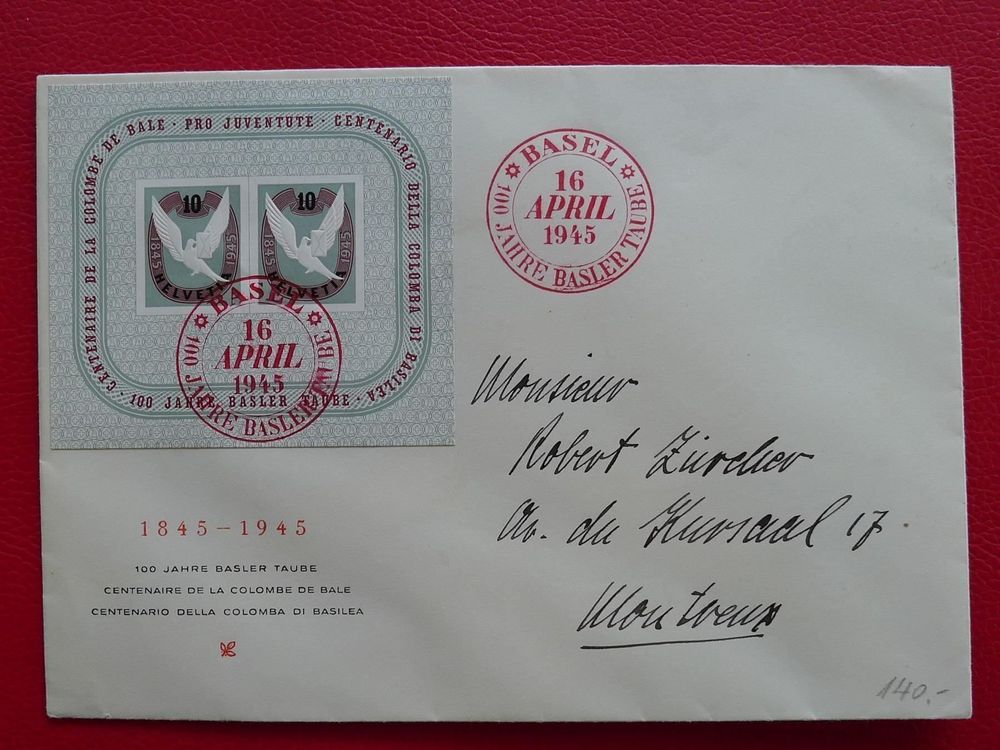 CENTENAIRE DE LA COLOMBE DE BALE · PRO JUVENTUTE · CENTENARIO DELLA COLOMBA DI BASILEA · 100 JAHRE BASLER TAUBE ·
10
1845 1945
HELVETIA
10
1845 1945
HELVETIA
BASEL
16
APRIL
1945
100 JAHRE BASLER TAUBE
BASEL
16
APRIL
1945
100 JAHRE BASLER TAUBE
Monsieur
Robert Zürcher
Av. du Kursaal 17
Montreux
1845 – 1945
100 JAHRE BASLER TAUBE
CENTENAIRE DE LA COLOMBE DE BALE
CENTENARIO DELLA COLOMBA DI BASILEA
140.-